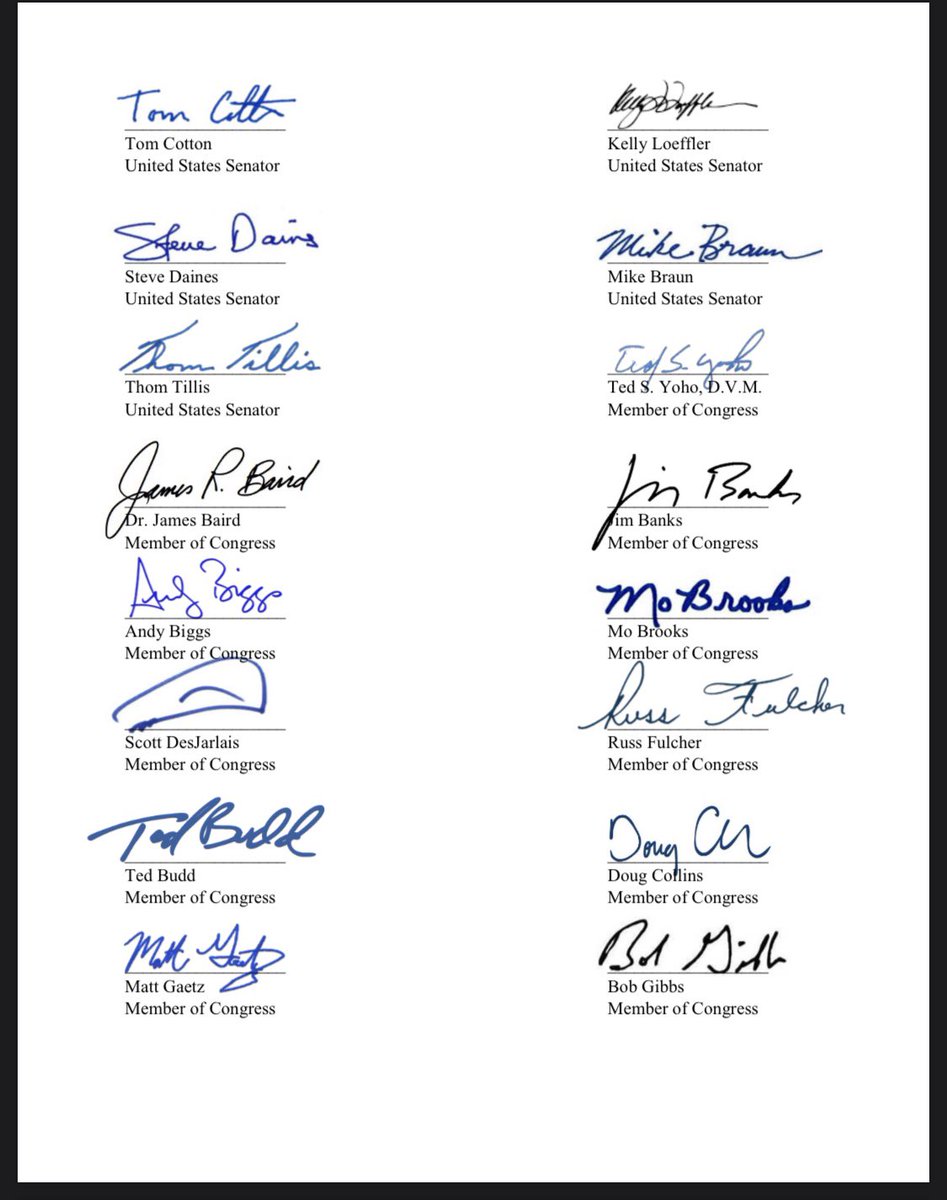 Tom Cotton
Tom Cotton
United States Senator
Kelly Loeffler
Kelly Loeffler
United States Senator
Steve Daines
Steve Daines
United States Senator
Mike Braun
Mike Braun
United States Senator
Thom Tillis
Thom Tillis
United States Senator
Ted S. Yoho
Ted S. Yoho, D.V.M.
Member of Congress
James R. Baird
Dr. James Baird
Member of Congress
Jim Banks
Jim Banks
Member of Congress
Andy Biggs
Andy Biggs
Member of Congress
Mo Brooks
Mo Brooks
Member of Congress
Scott DesJarlais
Member of Congress
Russ Fulcher
Russ Fulcher
Member of Congress
Ted Budd
Ted Budd
Member of Congress
Doug
Doug Collins
Member of Congress
Matt Gaetz
Matt Gaetz
Member of Congress
Bob Gibbs
Bob Gibbs
Member of Congress